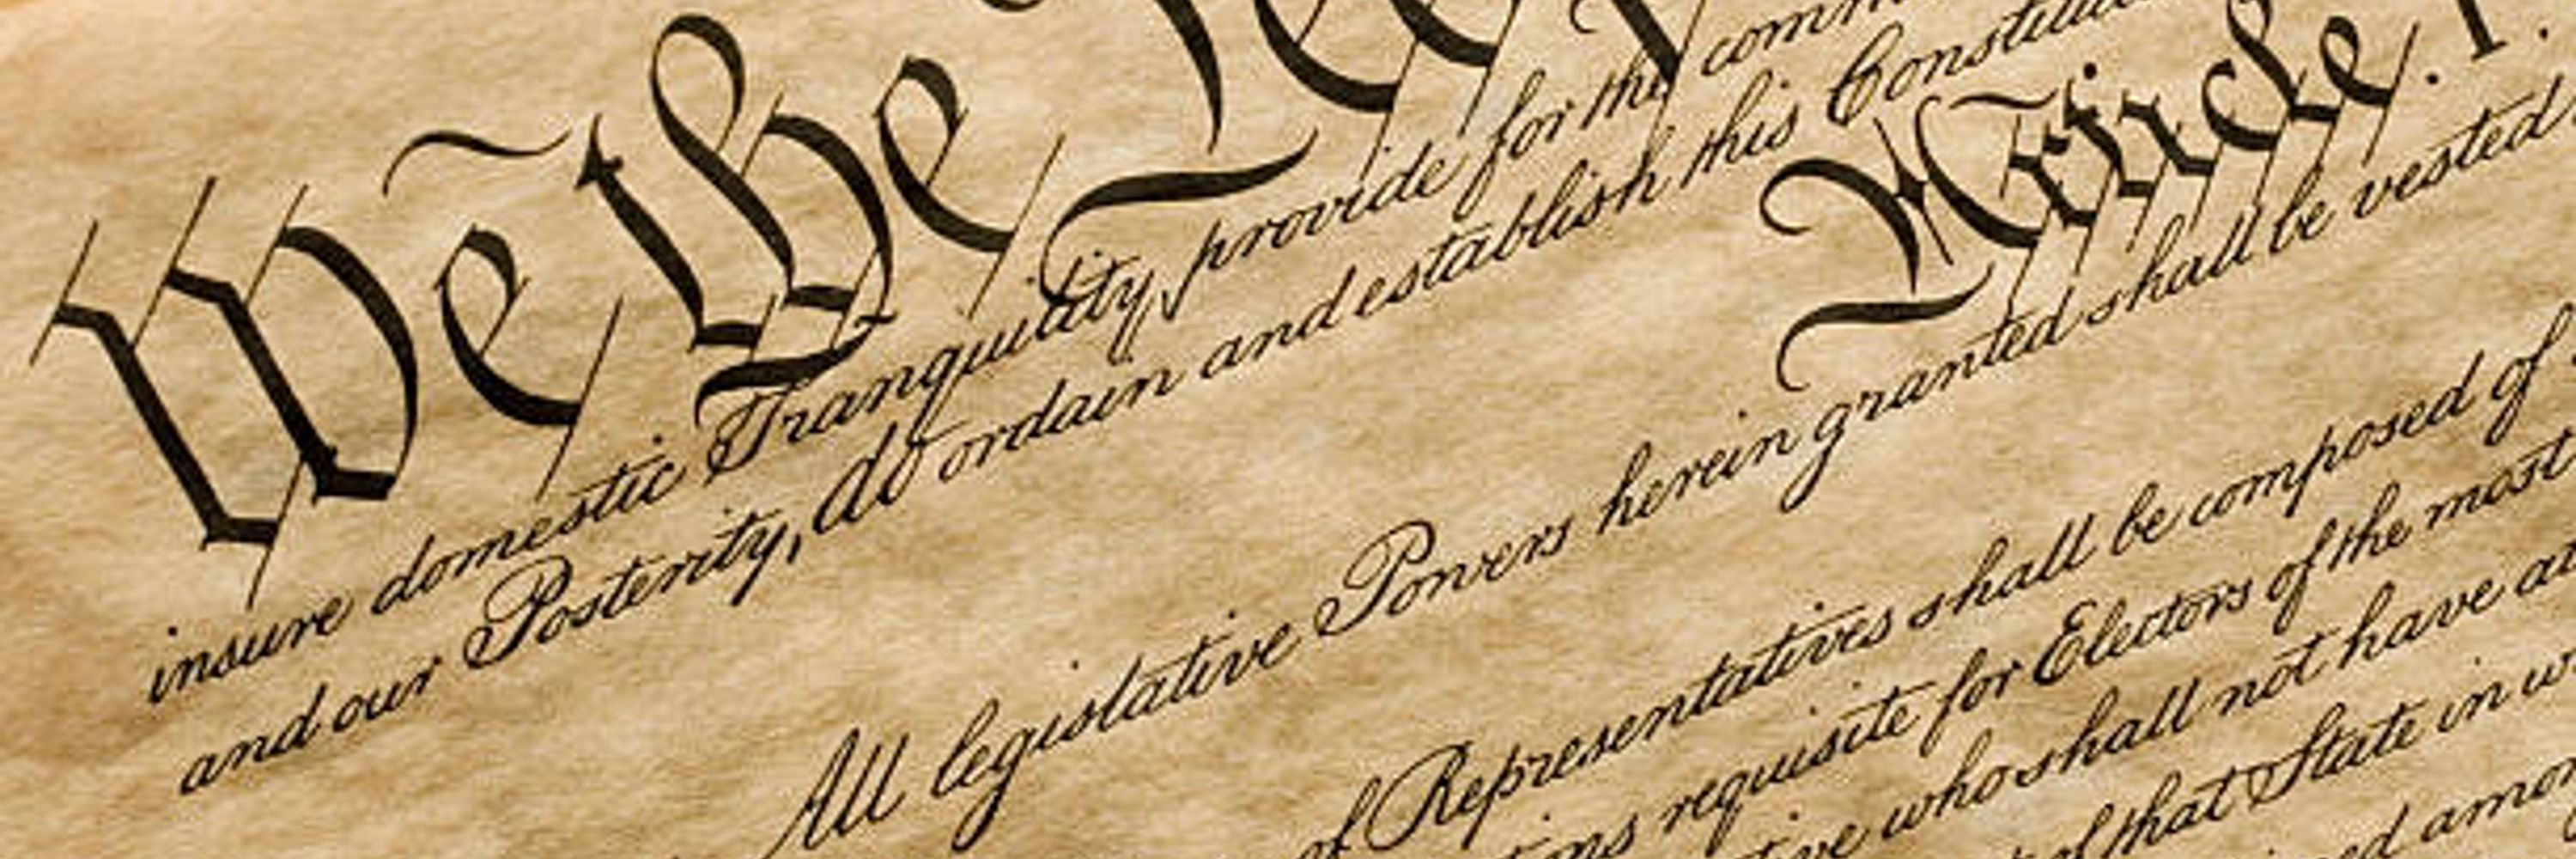 We the Peop
insure domestic Tranquility, provide for the comm
and our Posterity, do ordain and establish this Constitut
Article. I.
All legislative Powers herein granted shall be vested
of Representatives shall be composed of
requisite for Electors of the most
who shall not have at
of that State in w
amon